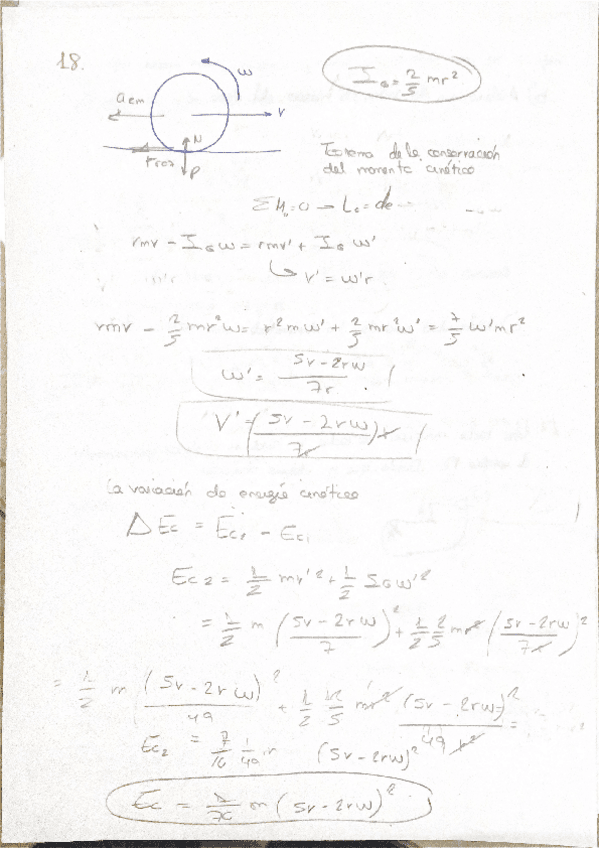 18.
I_G = 2/5 mr²
ω
a_cm
V
N
F_roz
P
Teorema de la conservación
del momento cinético
ΣM_o = 0 → L_o = cte
rmv - I_G ω = rmv' + I_G ω'
↳ v' = ω'r
rmv - 2/5 mr²ω = r²mω' + 2/5 mr²ω' = 7/5 ω'mr²
ω' = (5v - 2rω)/7r
V' = ((5v - 2rω)/7r) r
La variación de energía cinética
ΔEc = Ec₂ - Ec₁
Ec₂ = 1/2 mv'² + 1/2 I_G ω'²
= 1/2 m ((5v - 2rω)/7)² + 1/2 2/5 mr² ((5v - 2rω)/7r)²
= 1/2 m (5v - 2rω)²/49 + 1/2 2/5 mr² (5v - 2rω)²/49r² =
Ec₂ = 7/10 1/49 m (5v - 2rω)²
Ec = 1/70 m (5v - 2rω)²